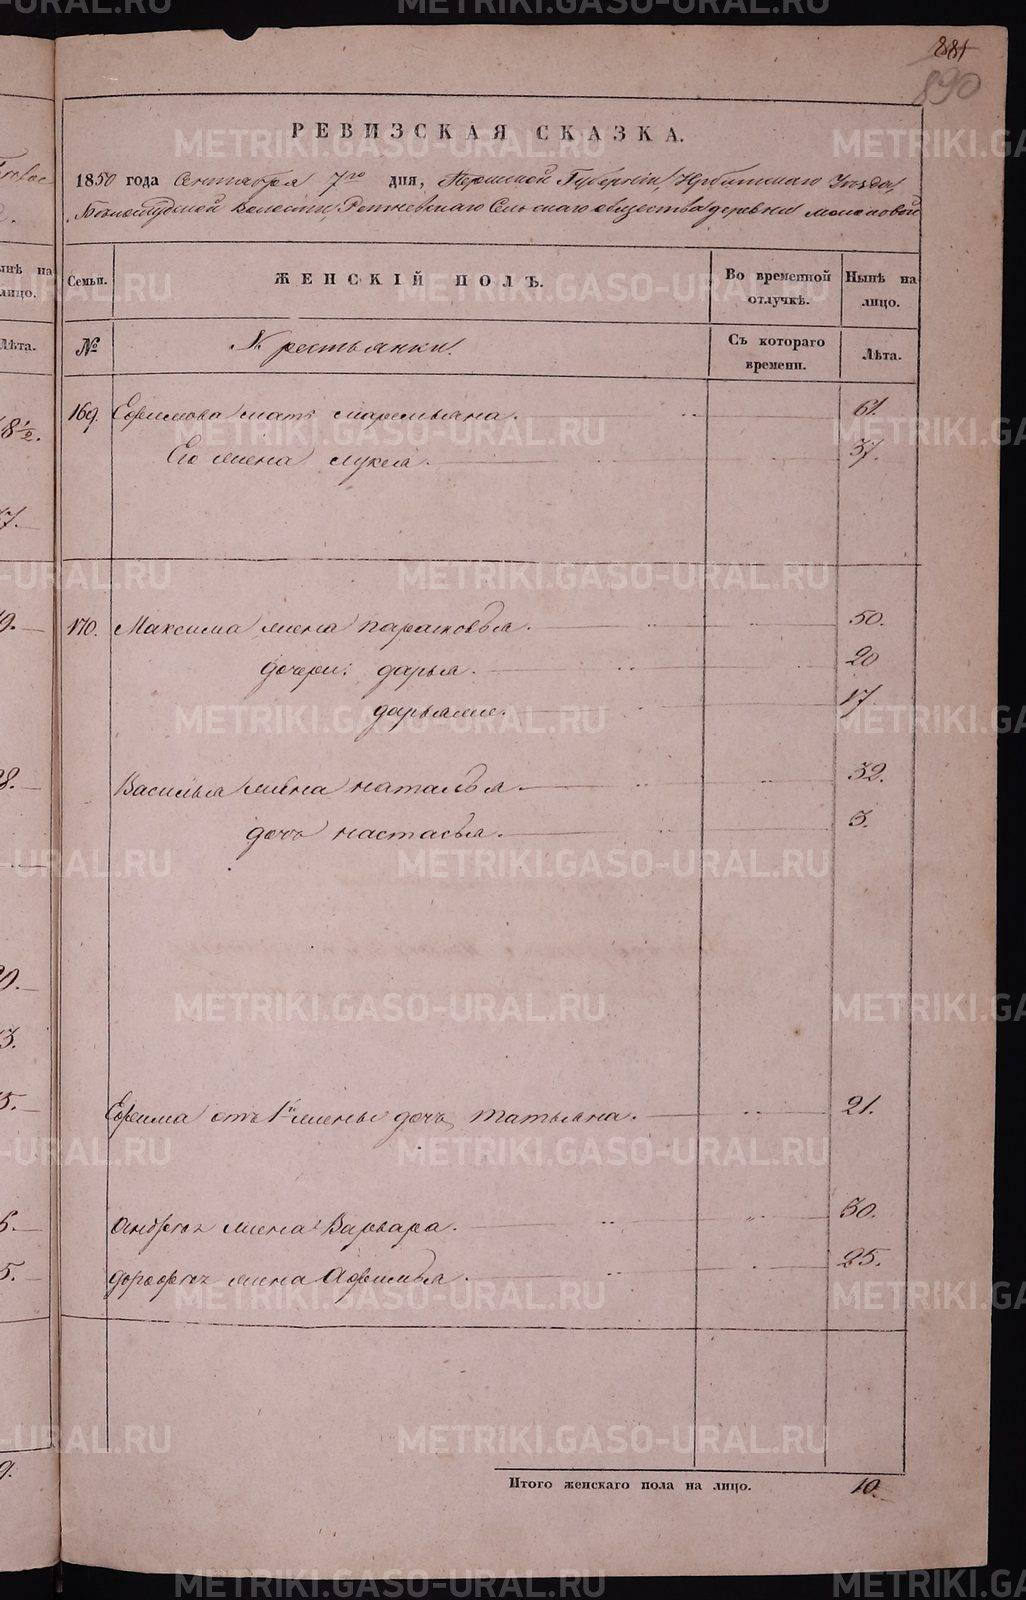 881
890
РЕВИЗСКАЯ СКАЗКА.
1850 года Сентября 7го дня, Пермской Губерніи, Ирбитского Уезда,
Белослудской Волости, Ретневскаго Сельскаго общества деревни Мокиной
ЖЕНСКІЙ ПОЛЪ.
Семьи.
Во временной отлучкѣ.
Нынѣ на лицо.
№
Крестьянки.
Съ котораго времени.
Лѣта.
169. Ефимова мать Маремьяна. 61.
Его жена Лукея. 37.
170. Максима жена Парасковья. 50.
дочери: Дарья. 20
Дарья же. 17.
Василья жена Наталья. 32.
дочь Настасья. 3.
Ефима отъ 1й жены дочь Татьяна. 21.
жена Варвара. 30.
Дорофея жена Афимья. 25.
Итого женскаго пола на лицо. 10.
METRIKI.GASO-URAL.RU